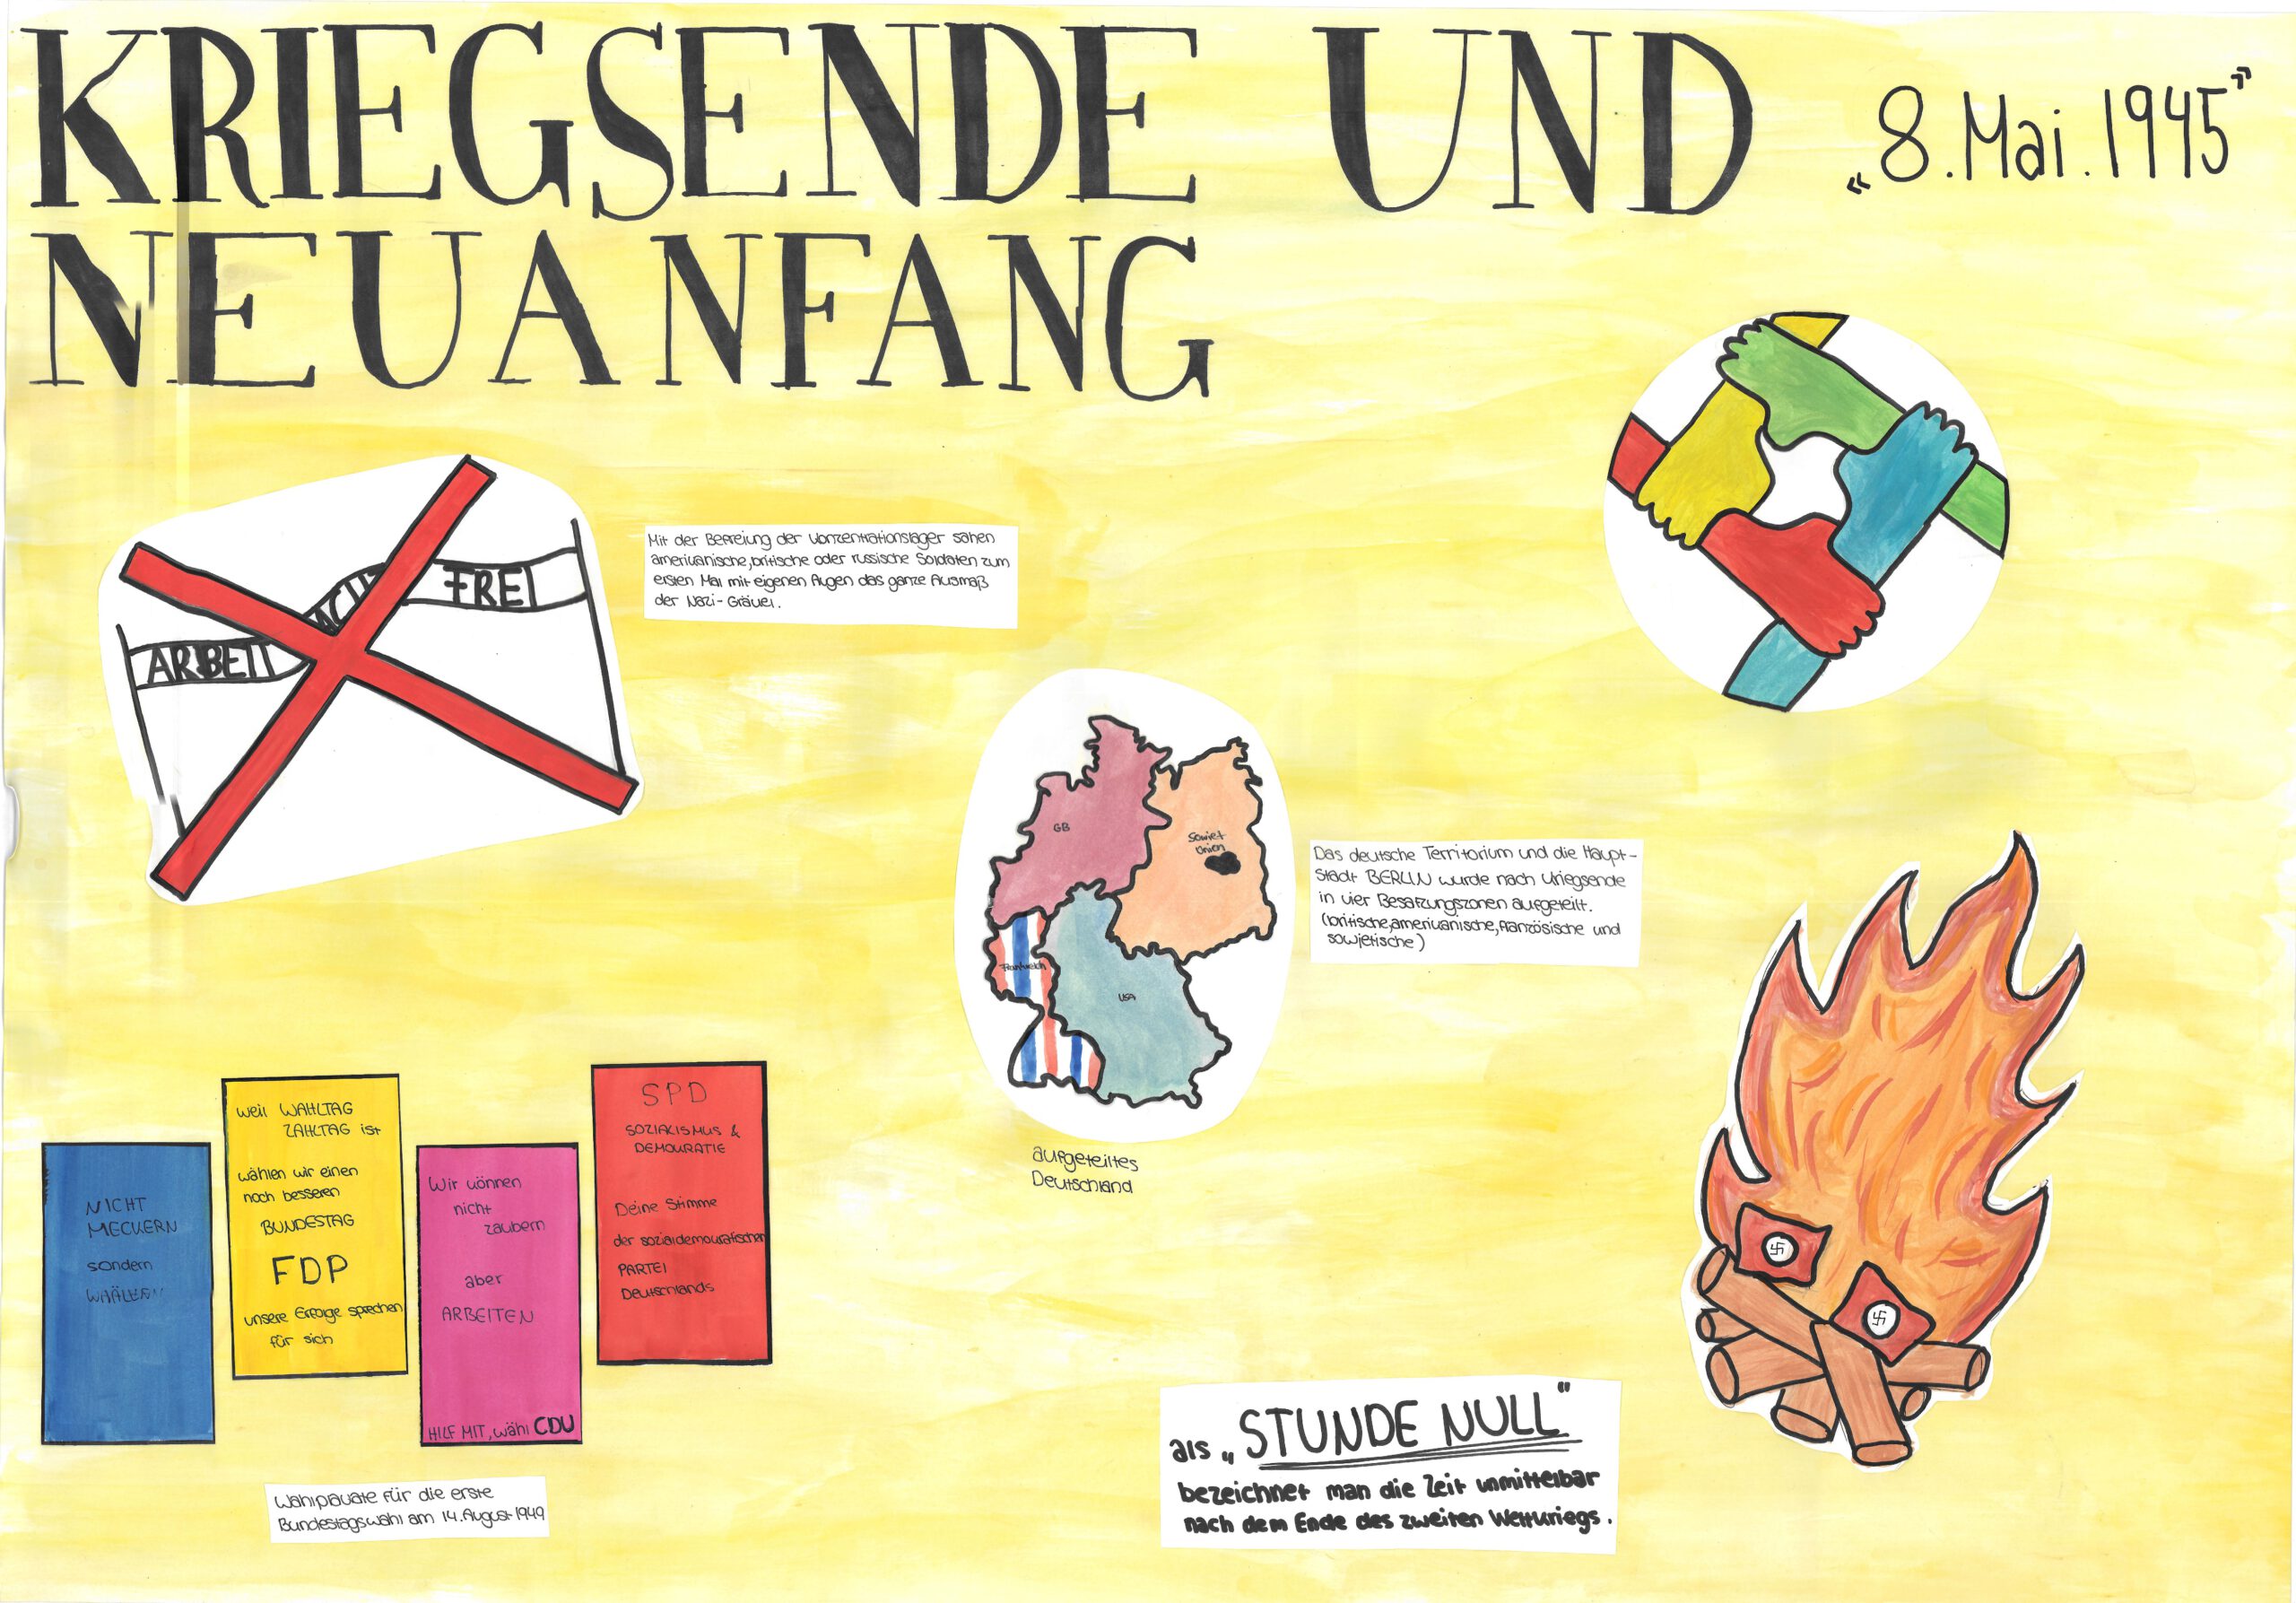 KRIEGSENDE UND
„8. Mai. 1945"
NEUANFANG
ARBEIT
FREI
Mit der Befreiung der Konzentrationslager sahen
amerikanische, britische oder russische Soldaten zum
ersten Mal mit eigenen Augen das ganze Ausmaß
der Nazi-Gräuel.
GB
Sowjet
Union
Frankreich
USA
aufgeteiltes
Deutschland
Das deutsche Territorium und die Haupt-
stadt BERLIN wurde nach Kriegsende
in vier Besatzungszonen aufgeteilt.
(britische, amerikanische, französische und
sowjetische)
NICHT
MECKERN
sondern
WÄHLEN
weil WAHLTAG
ZAHLTAG ist
wählen wir einen
noch besseren
BUNDESTAG
FDP
unsere Erfolge sprechen
für sich
Wir können
nicht
zaubern
aber
ARBEITEN
HILF MIT, wähl CDU
SPD
SOZIALISMUS &
DEMOKRATIE
Deine Stimme
der sozialdemokratischen
PARTEI
Deutschlands
Wahlplakate für die erste
Bundestagswahl am 14. August 1949
als „STUNDE NULL"
bezeichnet man die Zeit unmittelbar
nach dem Ende des zweiten Weltkriegs.